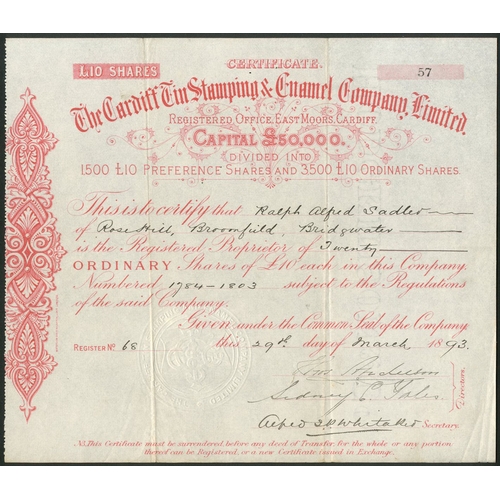 CERTIFICATE.
£10 SHARES
57
The Cardiff Tin Stamping & Enamel Company, Limited.
REGISTERED OFFICE, EAST MOORS, CARDIFF.
CAPITAL £50,000.
DIVIDED INTO
1500 £10 PREFERENCE SHARES AND 3500 £10 ORDINARY SHARES.
This is to certify that Ralph Alfred Sadler
of Rose Hill, Broomfield, Bridgwater
is the Registered Proprietor of Twenty
ORDINARY Shares of £10 each in this Company.
Numbered 1784-1803 subject to the Regulations
of the said Company.
Given under the Common Seal of the Company
REGISTER No. 68 this 29th day of March 1893.
Anderson
Directors.
Sidney C.
Alfred Whitaker Secretary
N.B. This Certificate must be surrendered before any deed of Transfer, for the whole or any portion
thereof can be Registered, or a new Certificate issued in Exchange.